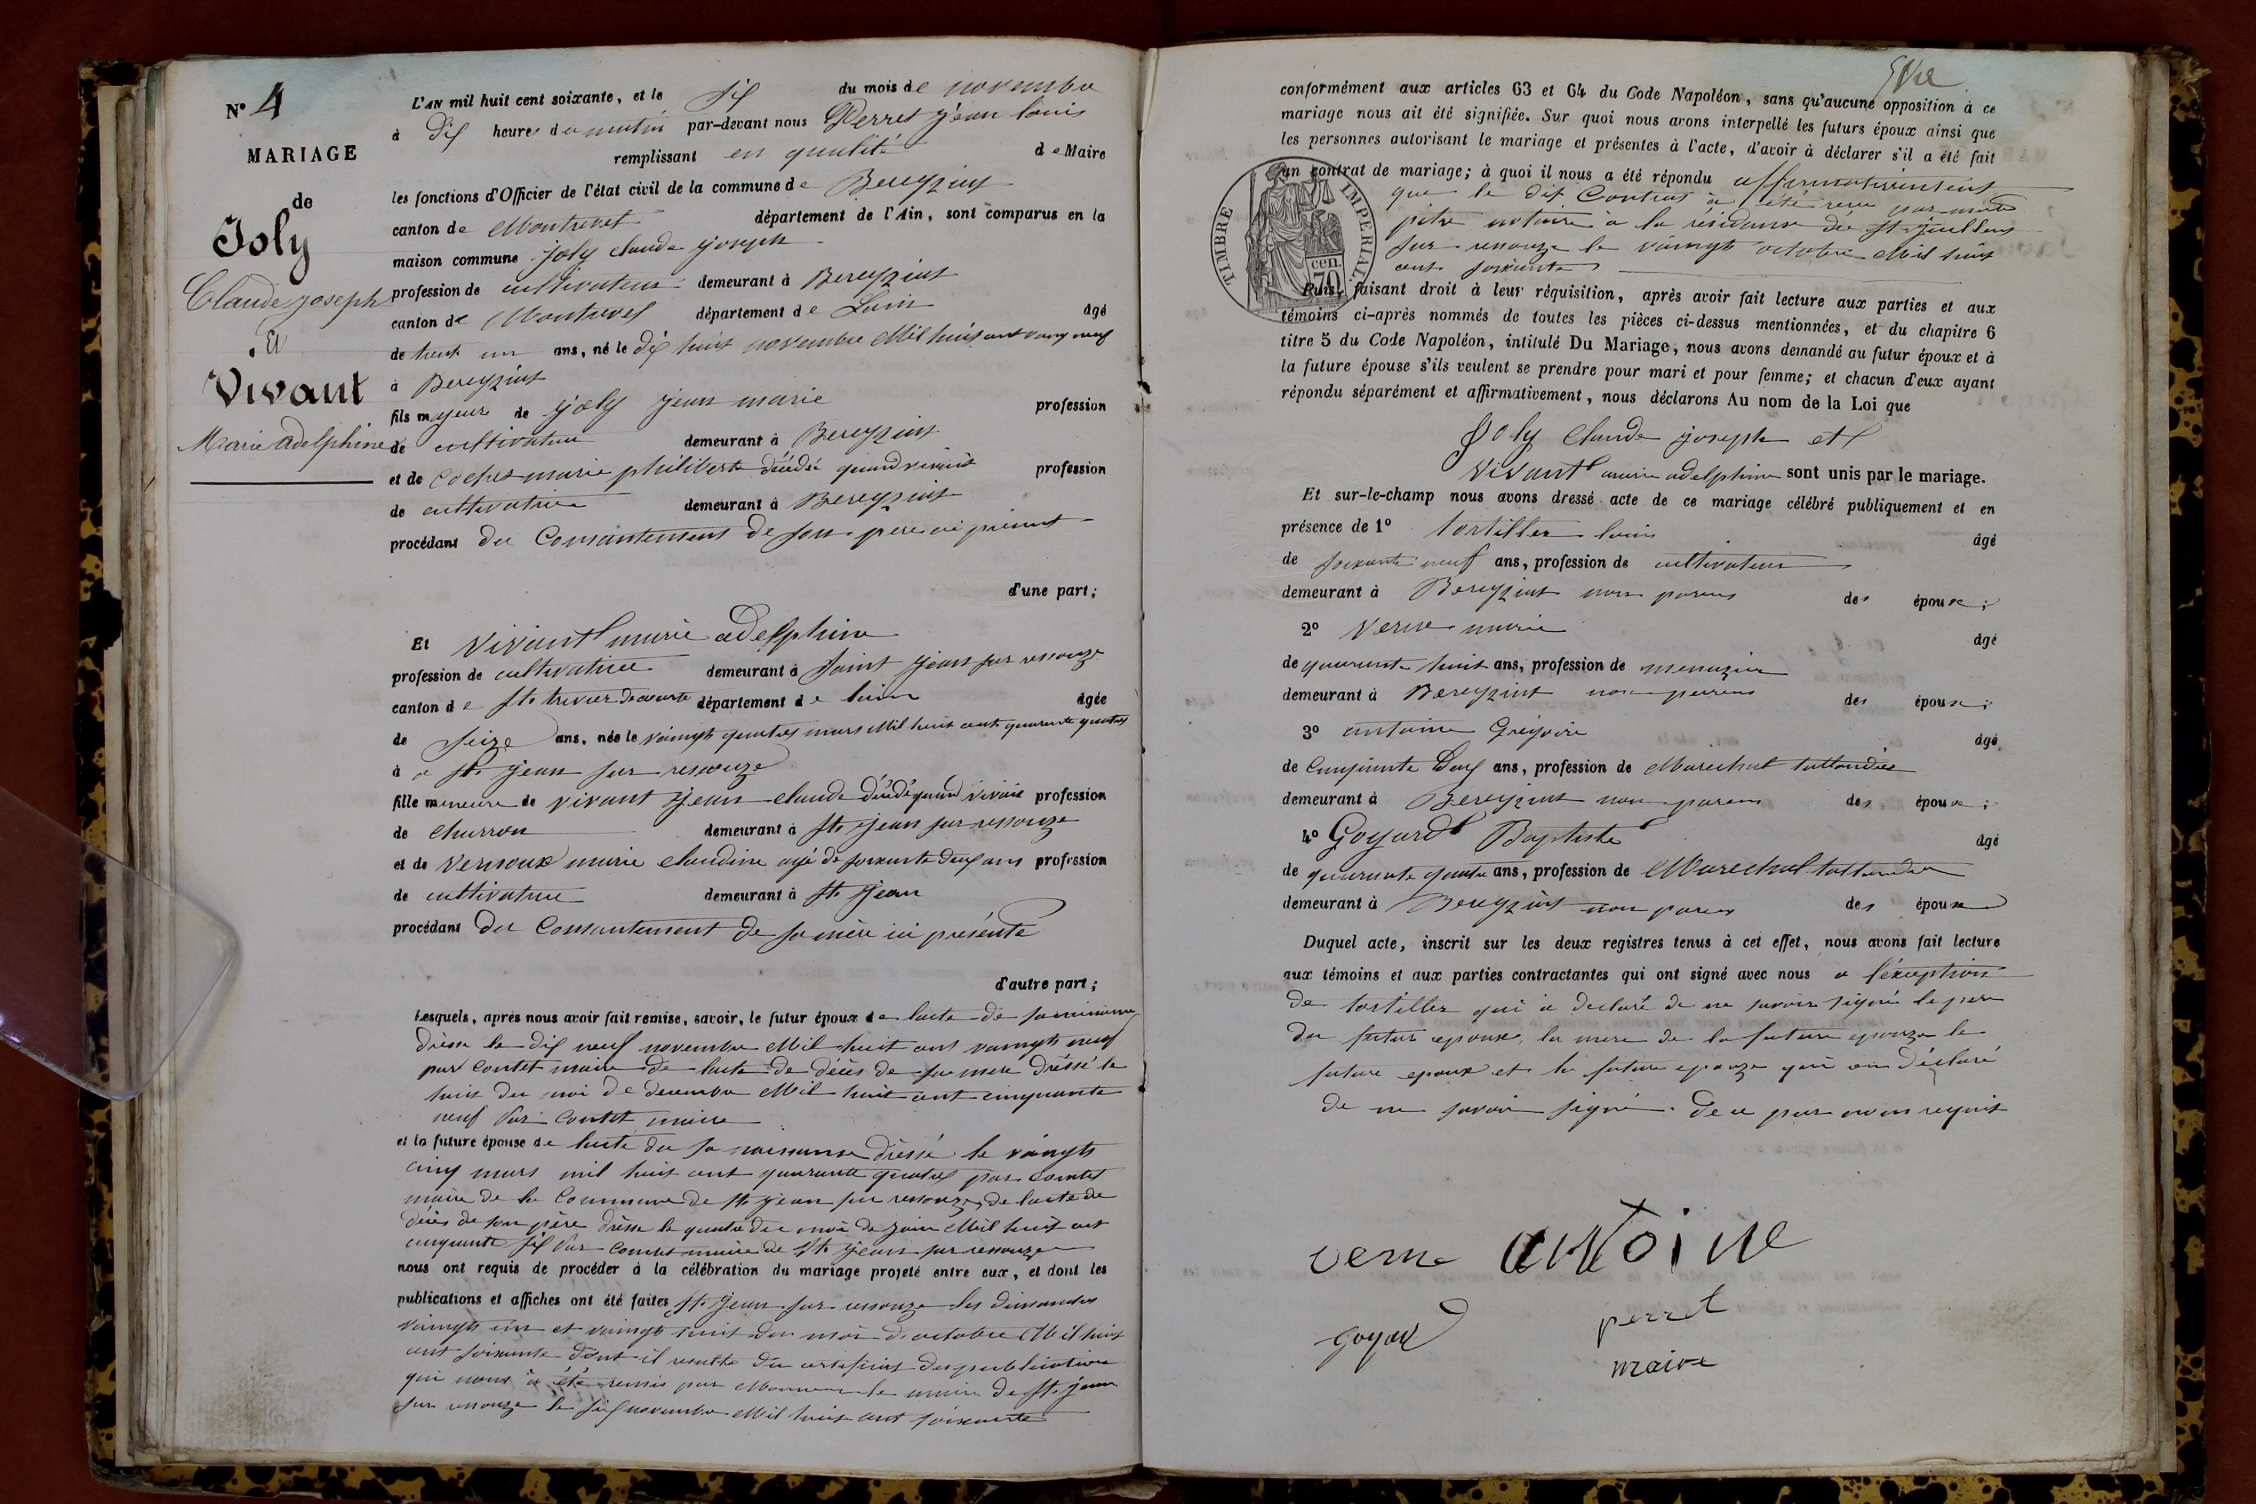 N° 4
MARIAGE
de
Joly
Claude joseph
Et
Vivant
Marie adelphine
L'AN mil huit cent soixante, et le six du mois de novembre
à dix heures du matin par-devant nous Perret jean louis
remplissant en qualité de Maire
les fonctions d'Officier de l'état civil de la commune de Bereyziat
canton de Montrevel département de l'Ain, sont comparus en la
maison commune joly claude joseph
profession de cultivateur demeurant à Bereyziat
canton de Montrevel département de Lain âgé
de trent un ans, né le dix huit novembre Mil huit cent vingt neuf
à Bereyziat
fils majeur de joly jean marie profession
de cultivateur demeurant à Bereyziat
et de marie philiberte décédée quand vivait profession
de cultivatrice demeurant à Bereyziat
procédant du Consantement de son pere ici présent
d'une part;
Et Vivant marie adelphine
profession de cultivatrice demeurant à Saint jean sur ressouze
canton de St trivier de courte département de lain âgée
de seize ans, née le vaingt quatres mars Mil huit cent quarante quatres
à a St jean sur ressouze
fille mineure de vivant jean claude décédé quand vivait profession
de charron demeurant à St jean sur ressouze
et de Vernoux marie claudine agé de soixante deux ans profession
de cultivatrice demeurant à St jean
procédant du Consantement de sa mère ici présente
d'autre part;
Lesquels, après nous avoir fait remise, savoir, le futur époux de lacte de sa
dresse le dix neuf novembre Mil huit cent vaingt neuf
par Contet maire de lacte de décès de sa mere dréssé le
huit du moi de decembre Mil huit cent cinquante
neuf Par Contet maire
et la future épouse de lacte du sa naissance dréssé le vaingts
cinq mars mil huit cent quarante quatres par Comtet
maire de la Commune de St jean sur ressouze, de lacte de
décès de son père dresse le quatre du moi de juin Mil huit cent
cinquante six Par Comtet maire de St jean sur ressouze
nous ont requis de procéder à la célébration du mariage projeté entre eux, et dont les
publications et affiches ont été faites St jean sur ressouze les dimanches
vaingt un et vaingt huit du moi d'octobre Mil huit
cent soixante dont il resulte du certificat des publication
qui nous à été remis par Monsieur le maire de St jean
sur ressouze le six novembre Mil huit cent soixante
conformément aux articles 63 et 64 du Code Napoléon, sans qu'aucune opposition à ce
mariage nous ait été signifiée. Sur quoi nous avons interpellé les futurs époux ainsi que
les personnes autorisant le mariage et présentes à l'acte, d'avoir à déclarer s'il a été fait
un contrat de mariage; à quoi il nous a été répondu affirmativement
que le dit Contrat à été recu par
pitre notaire à la résidence de St juillens
sur ressouze le vaingt octobre Mil huit
cent soixante
TIMBRE IMPERIAL
70 cen.
Puis, faisant droit à leur réquisition, après avoir fait lecture aux parties et aux
témoins ci-après nommés de toutes les pièces ci-dessus mentionnées, et du chapitre 6
titre 5 du Code Napoléon, intitulé Du Mariage, nous avons demandé au futur époux et à
la future épouse s'ils veulent se prendre pour mari et pour femme; et chacun d'eux ayant
répondu séparément et affirmativement, nous déclarons Au nom de la Loi que
Joly Claude joseph et
Vivant marie adelphine sont unis par le mariage.
Et sur-le-champ nous avons dressé acte de ce mariage célébré publiquement et en
présence de 1° tortiller louis âgé
de soixante neuf ans, profession de cultivateur
demeurant à Bereyziat non parens des époux;
2° Verne marie âgé
de quarante huit ans, profession de menuzier
demeurant à Bereyziat non parens des époux;
3° antoine Grégoire âgé
de Cinquante Deux ans, profession de Marechal tattandier
demeurant à Bereyziat non parens des époux;
4° Goyard Baptiste âgé
de quarante quatre ans, profession de Marechal tattandier
demeurant à Bereyziat non parens des époux
Duquel acte, inscrit sur les deux registres tenus à cet effet, nous avons fait lecture
aux témoins et aux parties contractantes qui ont signé avec nous a l'exception
de tortiller qui a declaré de ne savoir signé le pere
du futur epoux, la mere de la future epouze le
future epoux et la future epouze qui on déclaré
de ne savoir signé. de ce par nous requis
verne antoine
goyard perret
maire